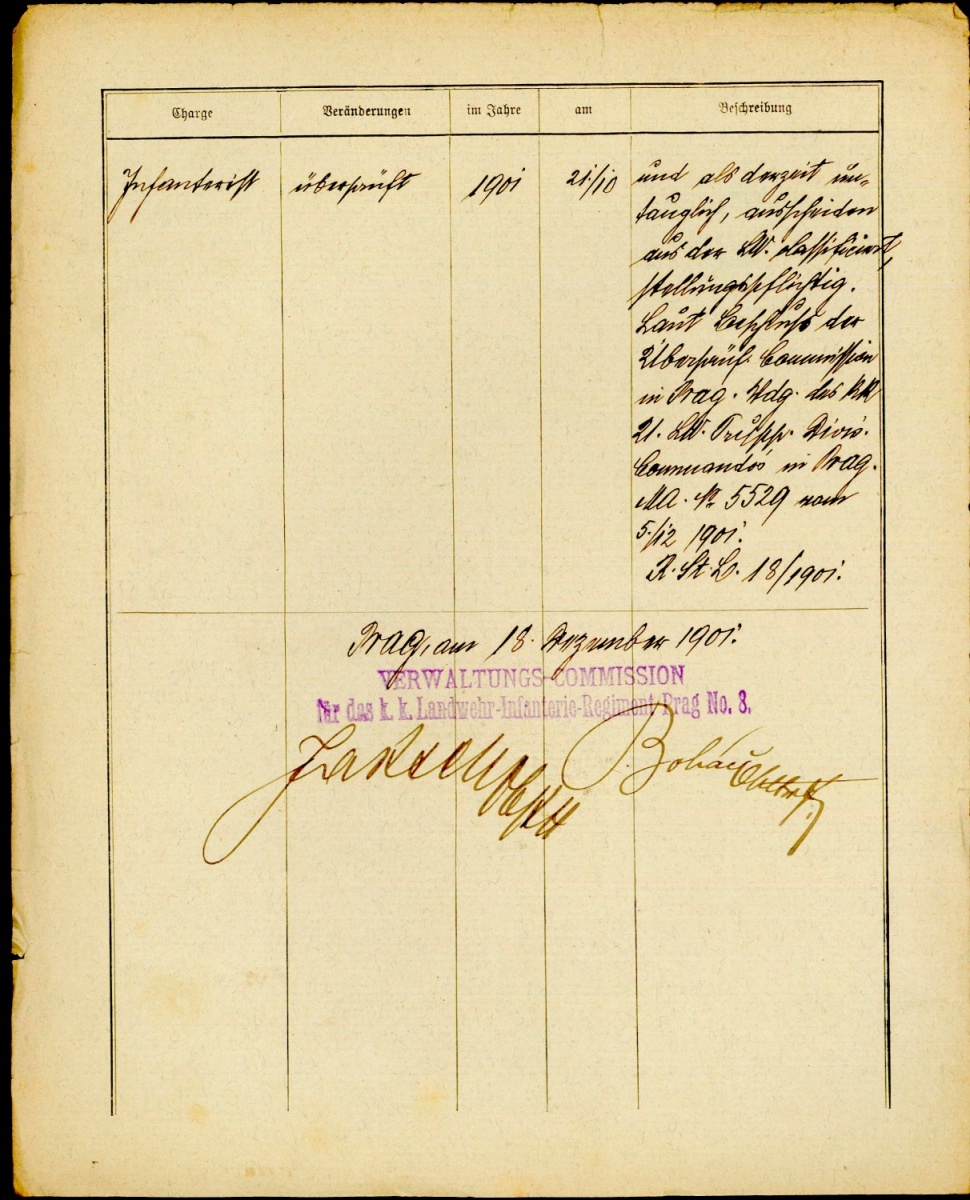 Charge Veränderungen im Jahre am Beschreibung
Infanterist überprüft 1901 21./10 und als derzeit un-
tauglich, ausscheiden
aus der LW. classificirt,
stellungspflichtig.
Laut Beschluß der
Überprüf. Commission
in Prag. des kk
21. LW. Trupp. Divis.
Commandos in Prag.
MA. № 5529 vom
5./12 1901.
R. St. L. 18/1901.
Prag, am 18. Dezember 1901.
VERWALTUNGS-COMMISSION
für das k. k. Landwehr-Infanterie-Regiment Prag No. 8.